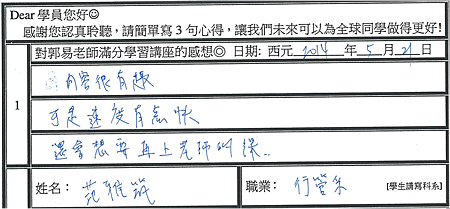 Dear 學員您好☺
感謝您認真聆聽，請簡單寫 3 句心得，讓我們未來可以為全球同學做得更好!
對郭易老師滿分學習講座的感想◎ 日期: 西元 2014 年 5 月 21 日
1
內容很有趣
可是速度有點快
還會想要再上老師的課..
姓名: 范雅筑
職業: 行管系 [學生請寫科系]